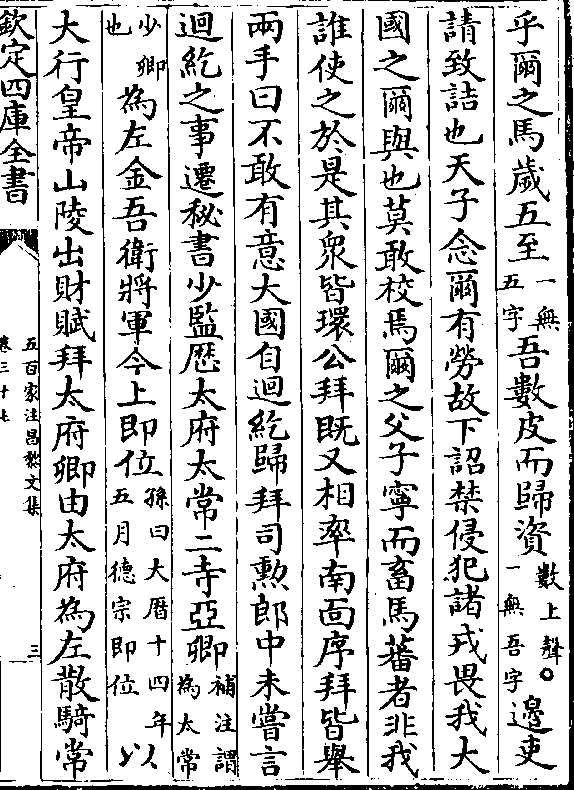 乎爾之馬歲五至一無五字吾數皮而歸資數上聲○一無吾字邊吏
請致詰也天子念爾有勞故下詔禁侵犯諸戎畏我大
國之爾與也莫敢校焉爾之父子寧而畜馬蕃者非我
誰使之於是其衆皆環公拜既又相率南面序拜皆舉
兩手曰不敢有意大國自迴紇歸拜司勲郎中未嘗言
迴紇之事遷秘書少監歴太府太常二寺亞卿補注謂為太常
少卿也為左金吾衛將軍今上即位孫曰大厯十四年五月德宗即位以
大行皇帝山陵出財賦拜太府卿由太府為左散騎常
欽定四庫全書
五百家注昌黎文集
卷三十七
三